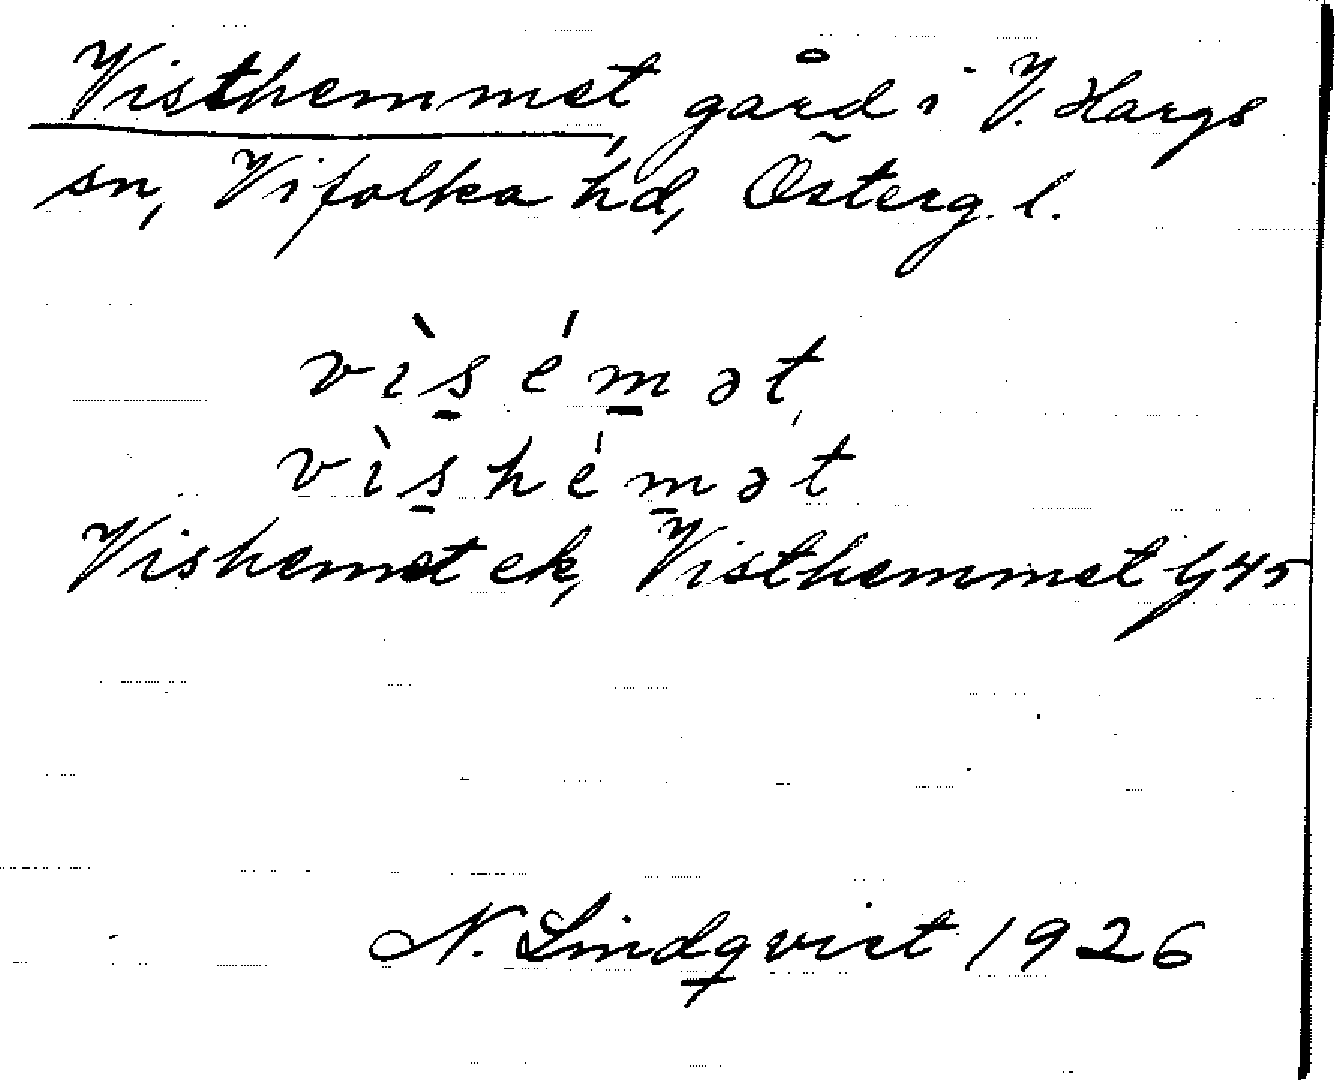 Visthemmet, gård i V. Hargs
sn, Vifolka hd, Österg. l.
vìs̱ém̱ət,
vìs̱hém̱ət
Vishemet ek, Visthemmet G45
N. Lindqvist 1926